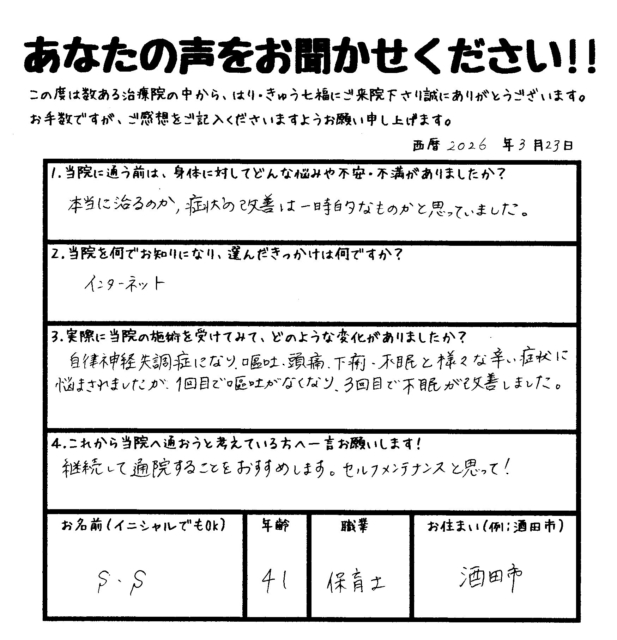 あなたの声をお聞かせください!!
この度は数ある治療院の中から、はり・きゅう七福にご来院下さり誠にありがとうございます。
お手数ですが、ご感想をご記入くださいますようお願い申し上げます。
西暦 2026 年 3 月 23 日
1.当院に通う前は、身体に対してどんな悩みや不安・不満がありましたか?
本当に治るのか, 症状の改善は一時的なものかと思っていました。
2.当院を何でお知りになり、選んだきっかけは何ですか?
インターネット
3.実際に当院の施術を受けてみて、どのような変化がありましたか?
自律神経失調症になり、嘔吐、頭痛、下痢・不眠と様々な辛い症状に
悩まされましたが、1回目で嘔吐がなくなり、3回目で不眠が改善しました。
4.これから当院へ通おうと考えている方へ一言お願いします!
継続して通院することをおすすめします。セルフメンテナンスと思って!
お名前(イニシャルでもOK) 年齢 職業 お住まい(例;酒田市)
S.S 41 保育士 酒田市